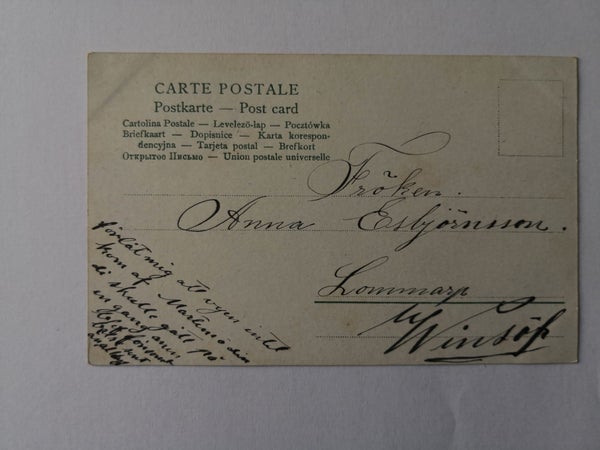 CARTE POSTALE
Postkarte — Post card
Cartolina Postale — Levelező-lap — Pocztówka
Briefkaart — Dopisnice — Karta korespon-
dencyjna — Tarjeta postal — Brefkort
Открытое Письмо — Union postale universelle
Fröken.
Anna Esbjörnsson.
Lommarp
Winslöf
förlåt mig att vyen intel
kom af
di skulle gått på
en gang